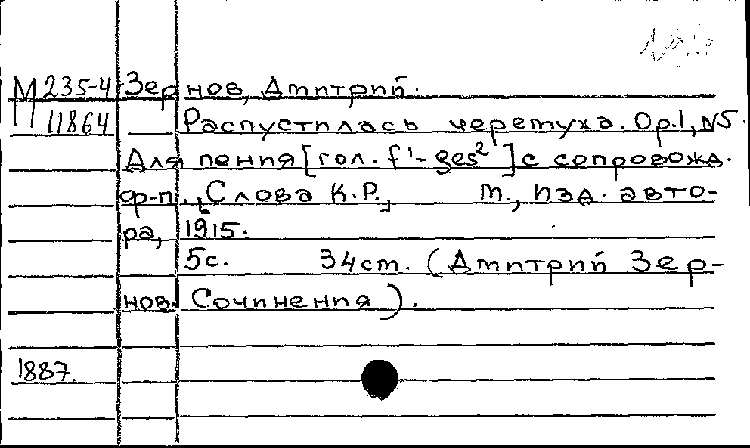 М 235-4 Зернов, Дмитрий.
11864 Распустилась черемуха. Op.1, N5.
Для пения [гол. f¹-ges²] с сопровожд.
ф-п. [Слова К.Р.] М., изд. авто-
ра, 1915.
5с. 34см. (Дмитрий Зер-
нов. Сочинения).
1887.